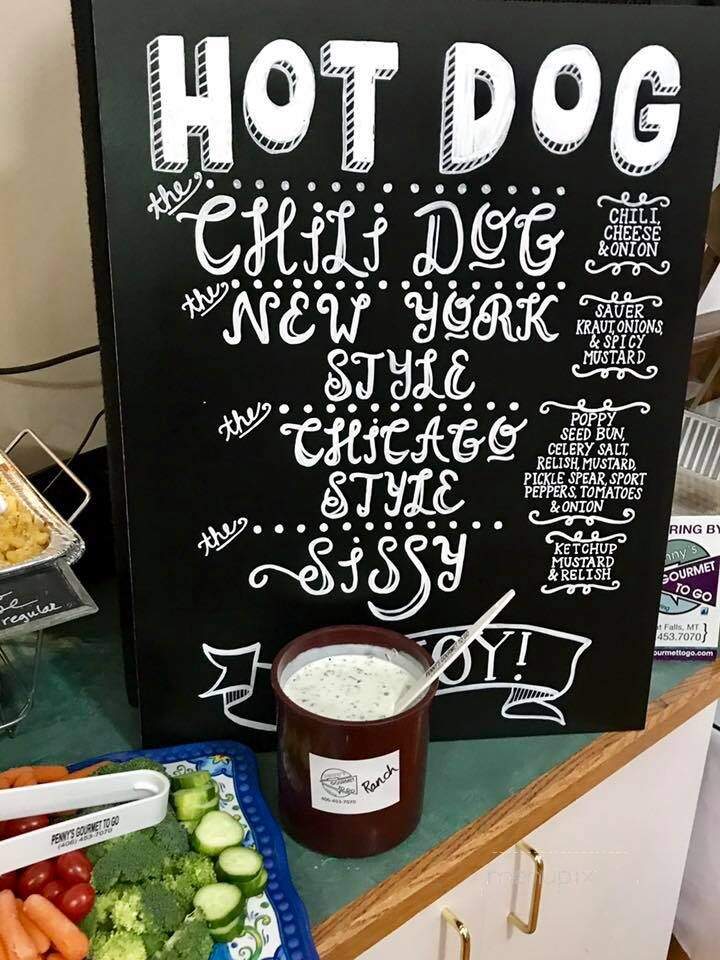 HOT DOG
the CHiLi DOG
CHILI,
CHEESE
& ONION
the NEW YORK
STYLE
SAUER
KRAUT, ONIONS,
& SPICY
MUSTARD
the CHiCAGO
STYLE
POPPY
SEED BUN,
CELERY SALT,
RELISH, MUSTARD,
PICKLE SPEAR, SPORT
PEPPERS, TOMATOES
& ONION
the SiSSY
KETCHUP
MUSTARD
& RELISH
OY!
regular
RING BY
nny's
GOURMET
TO GO
t Falls, MT
453.7070
urmettogo.com
Ranch
406-453-7070
PENNY'S GOURMET TO GO
(406) 453-7070
menupix